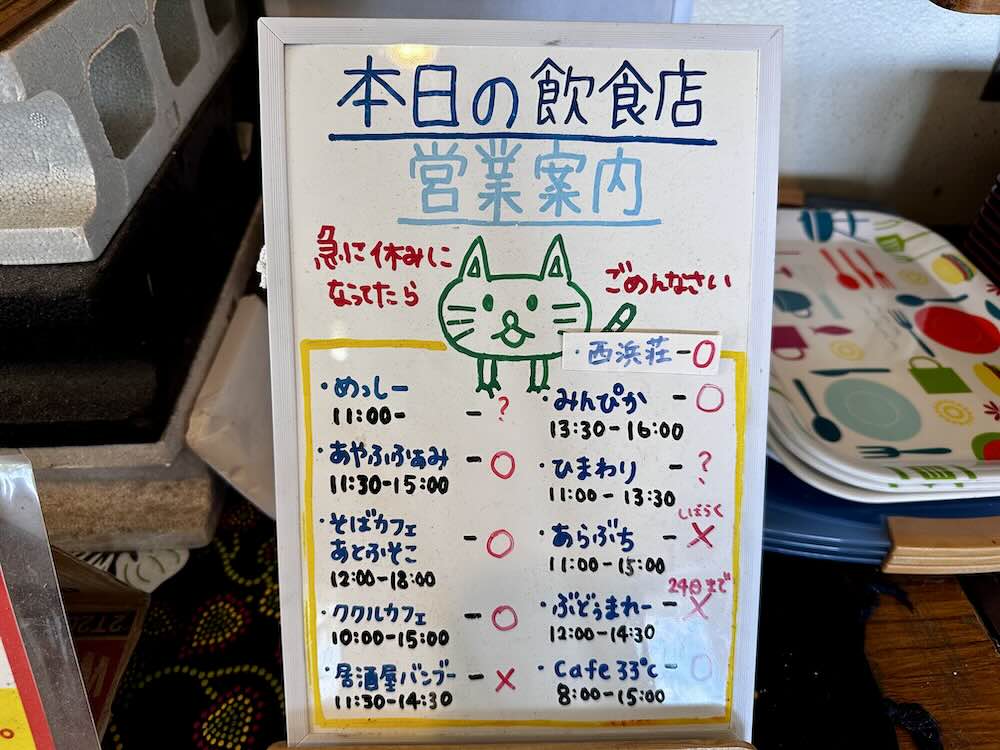 本日の飲食店
営業案内
急に休みに
なってたら
ごめんなさい
・西浜荘-○
・めっしー
11:00- -?
・あやふふぁみ -○
11:30-15:00
・そばカフェ
あとふそこ -○
12:00-18:00
・ククルカフェ -○
10:00-15:00
・居酒屋バンブー-×
11:30-14:30
・みんぴか -○
13:30-16:00
・ひまわり -?
11:00-13:30
しばらく
・あらぶち -×
11:00-15:00
24日まで
・ぶどぅまれー-×
12:00-14:30
・Cafe 33℃ -○
8:00-15:00